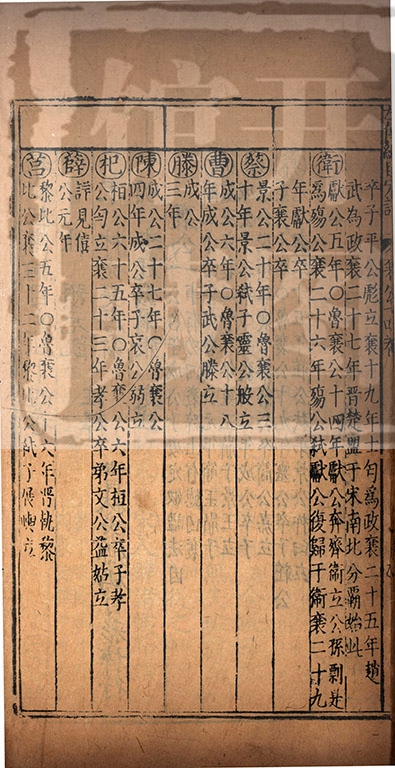 卒子平公彪立襄十九年士匄為政襄二十五年趙
武為政襄二十七年晉楚盟于宋南北分霸始此
衛獻公五年〇魯襄公十四年獻公奔齊衛立公孫剽是
為殤公襄二十六年殤公弒獻公復歸于衛襄二十九
年獻公卒
子襄公
蔡景公二十年〇魯襄公三
十年景公弒子靈公般立
曹成公六年〇魯襄公十八
年成公卒子武公滕立
滕成公
三年
陳成公二十七年〇魯襄公
四年成公卒子哀公弱立
杞桓公六十五年〇魯襄公六年桓公卒子孝
公匄立襄二十三年孝公卒弟文公益姑立
薛詳見僖
公元年
莒黎比公五年〇魯襄公十六年晉執黎
比公襄三十二年黎比公弒子展輿立